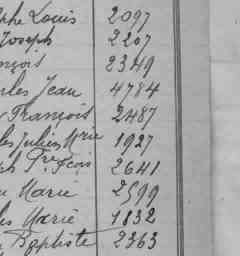 phe Louis 2097
Joseph 2207
nçois 2349
rles Jean 4784
François 2487
les Julien Marie 1927
ph Frçois 2641
Marie 2599
les Marie 1832
Baptiste 2363